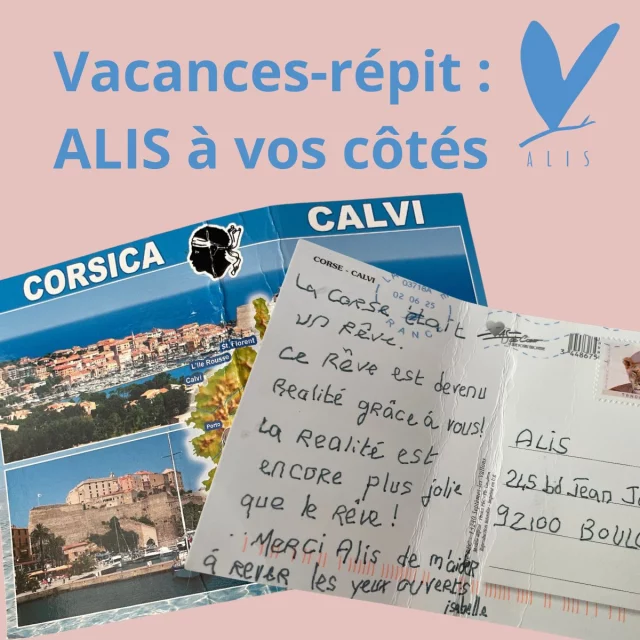 Vacances-répit :
ALIS à vos côtés
ALIS
CORSICA
CALVI
St Florent
L'Ile Rousse
Calvi
Porto
CORSE - CALVI
03718A
02.06.25
FRANC
3 448675
La Corse était
un Rêve.
Ce Rêve est devenu
Réalité grâce à vous!
La Réalité est
encore plus jolie
que le Rêve !
Merci Alis de m'aider
à rêver les yeux ouverts
isabelle
ALIS
245 bd Jean J
92100 BOULO